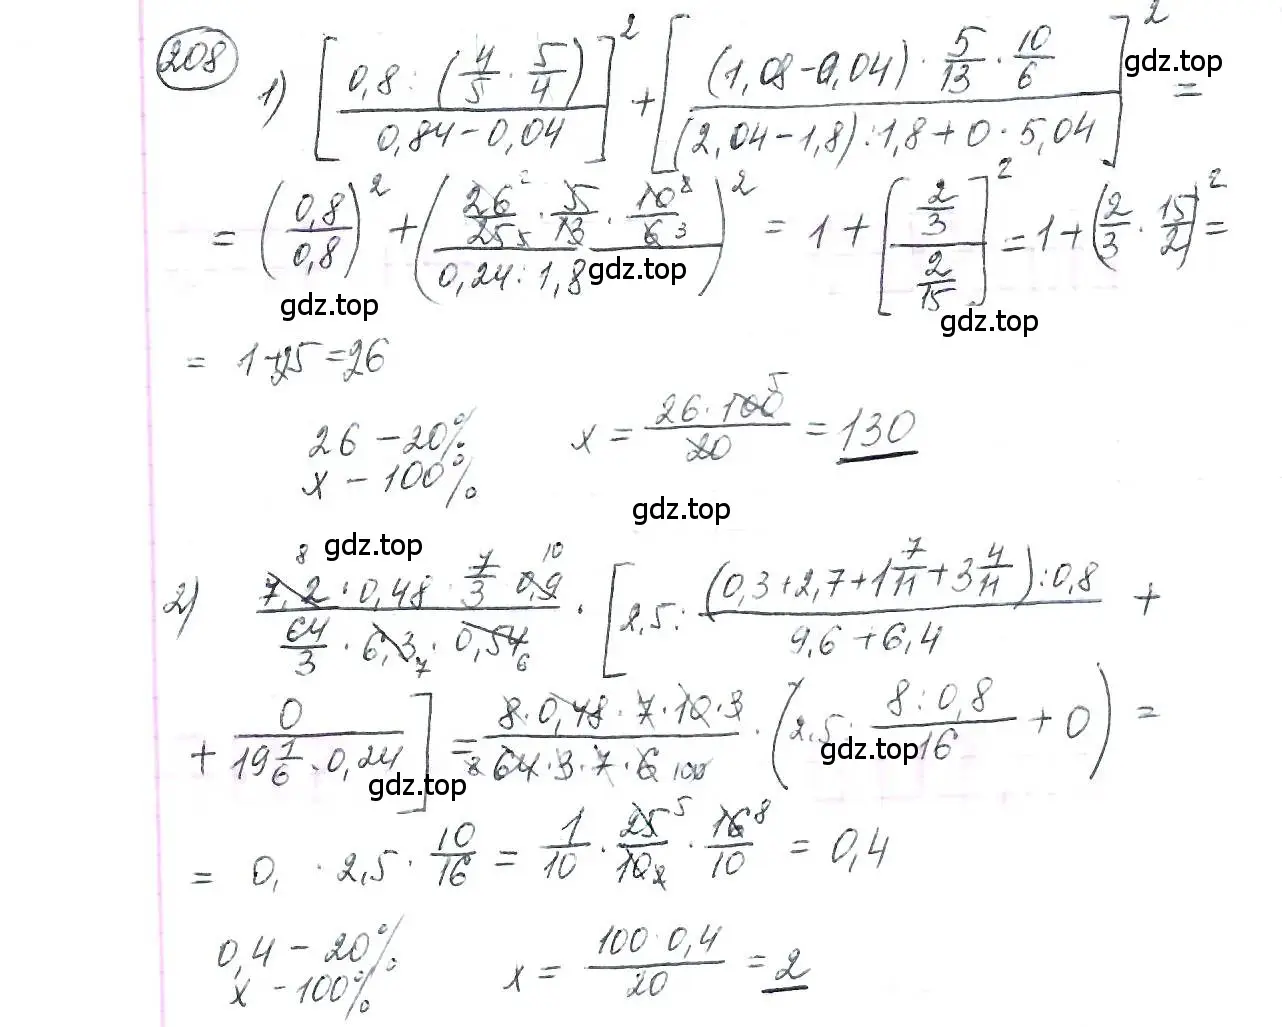 208
1) [0,8 : (4/5 · 5/4) / 0,84 − 0,04]² + [(1,08 − 0,04) · 5/13 · 10/6 / (2,04 − 1,8) : 1,8 + 0 · 5,04]² =
gdz.top
= (0,8 / 0,8)² + (26/25 · 5/13 · 10/6 / 0,24 : 1,8)² = 1 + [2/3 / 2/15]² = 1 + (2/3 · 15/2)² =
gdz.top gdz.top gdz.top
= 1 + 25 = 26
26 − 20%
x − 100%
x = 26 · 100 / 20 = 130
gdz.top
gdz.top
2) 7,2 · 0,48 · 7/3 · 0,9 / 64/3 · 6,3 · 0,54 · [2,5 : (0,3 + 2,7 + 1 7/11 + 3 4/11) : 0,8 / 9,6 + 6,4 +
+ 0 / 19 1/6 · 0,24] = 8 · 0,48 · 7 · 10 · 3 / 64 · 3 · 7 · 6 · (2,5 · 8 : 0,8 / 16 + 0) =
gdz.top gdz.top
= 0, · 2,5 · 10/16 = 1/10 · 25/10 · 16/10 = 0,4
0,4 − 20%
x − 100%
x = 100 · 0,4 / 20 = 2